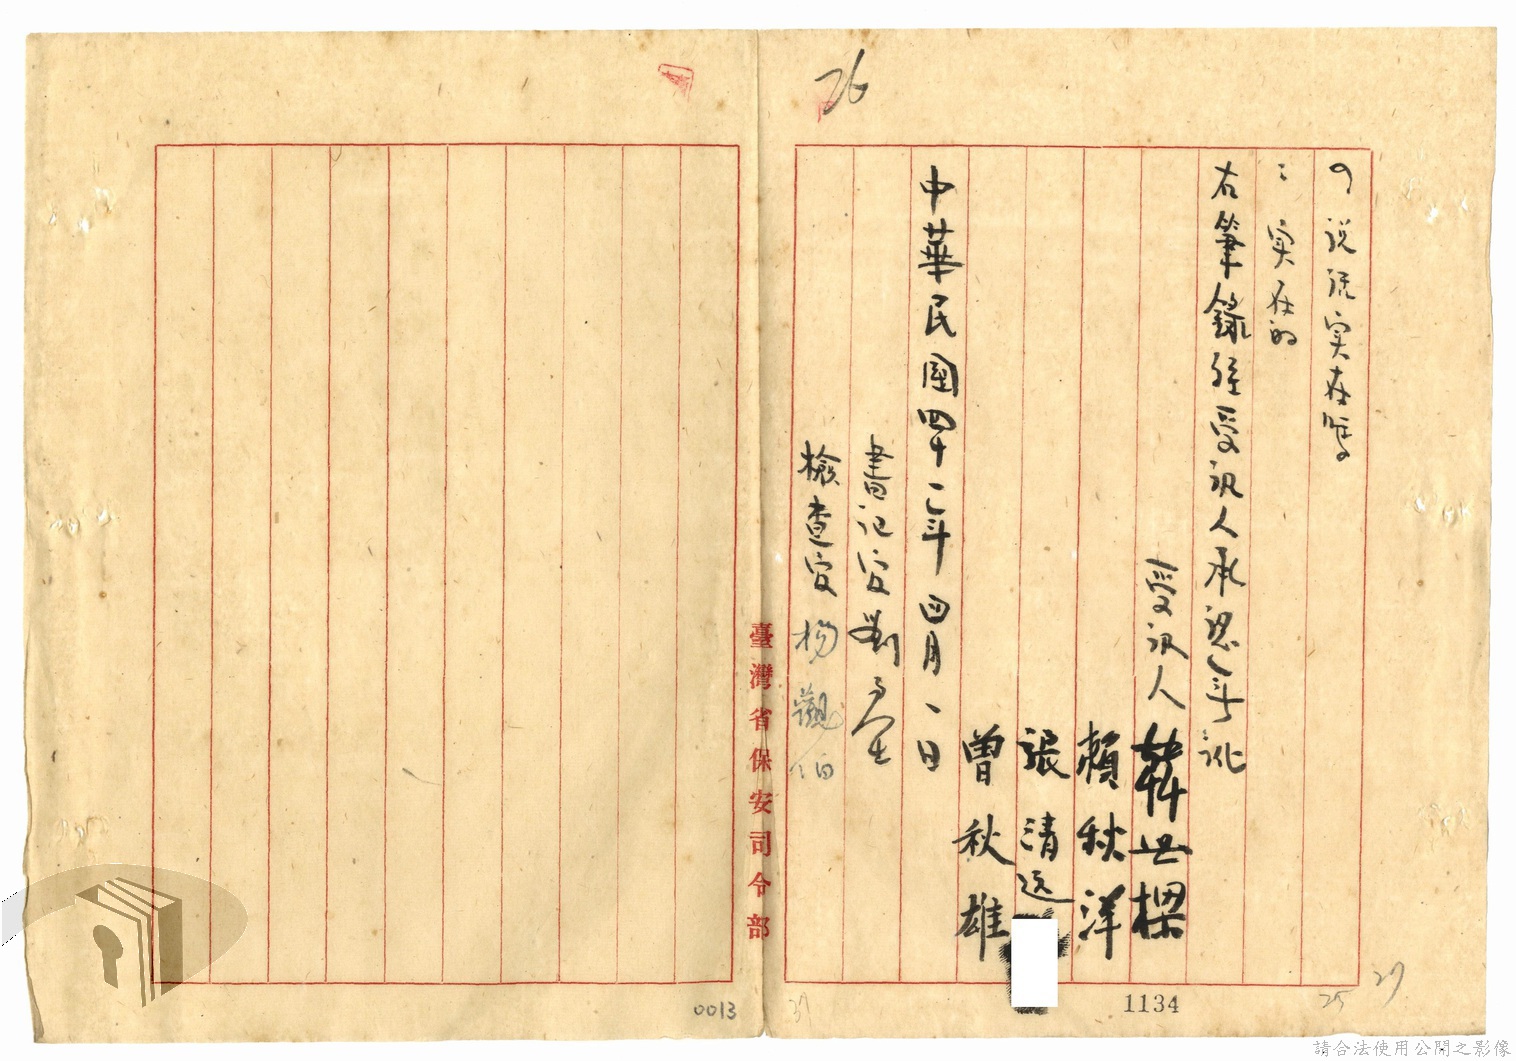 26
?說話實在嗎
：实在的
右筆錄經受訊人承認無訛
受訊人 韓世樑
賴秋洋
張清逸
曾秋雄
中華民國四十二年四月一日
書記官劉
檢查官 楊觀伯
臺灣省保安司令部
0013
37
1134
25
27
請合法使用公開之影像